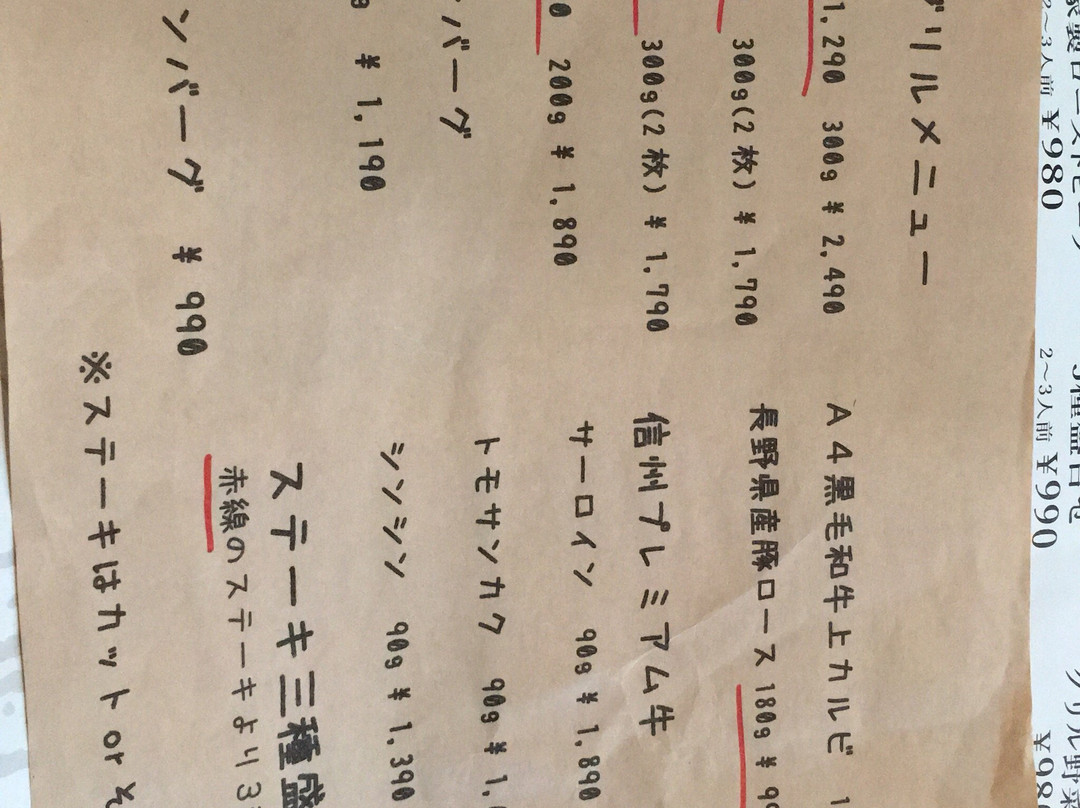 グリルメニュー
1,290 300g ¥ 2,490
300g(2枚) ¥ 1,790
300g(2枚) ¥ 1,790
200g ¥ 1,890
バーグ
¥ 1,190
ンバーグ ¥ 990
A4黒毛和牛上カルビ
長野県産豚ロース 180g ¥ 99
信州プレミアム牛
サーロイン 90g ¥ 1,890
トモサンカク 90g ¥ 1,
シンシン 90g ¥ 1,390
ステーキ三種盛
赤線のステーキより3
※ステーキはカット or そ
2〜3人前 ¥980
2〜3人前 ¥990
グリル野菜
¥98